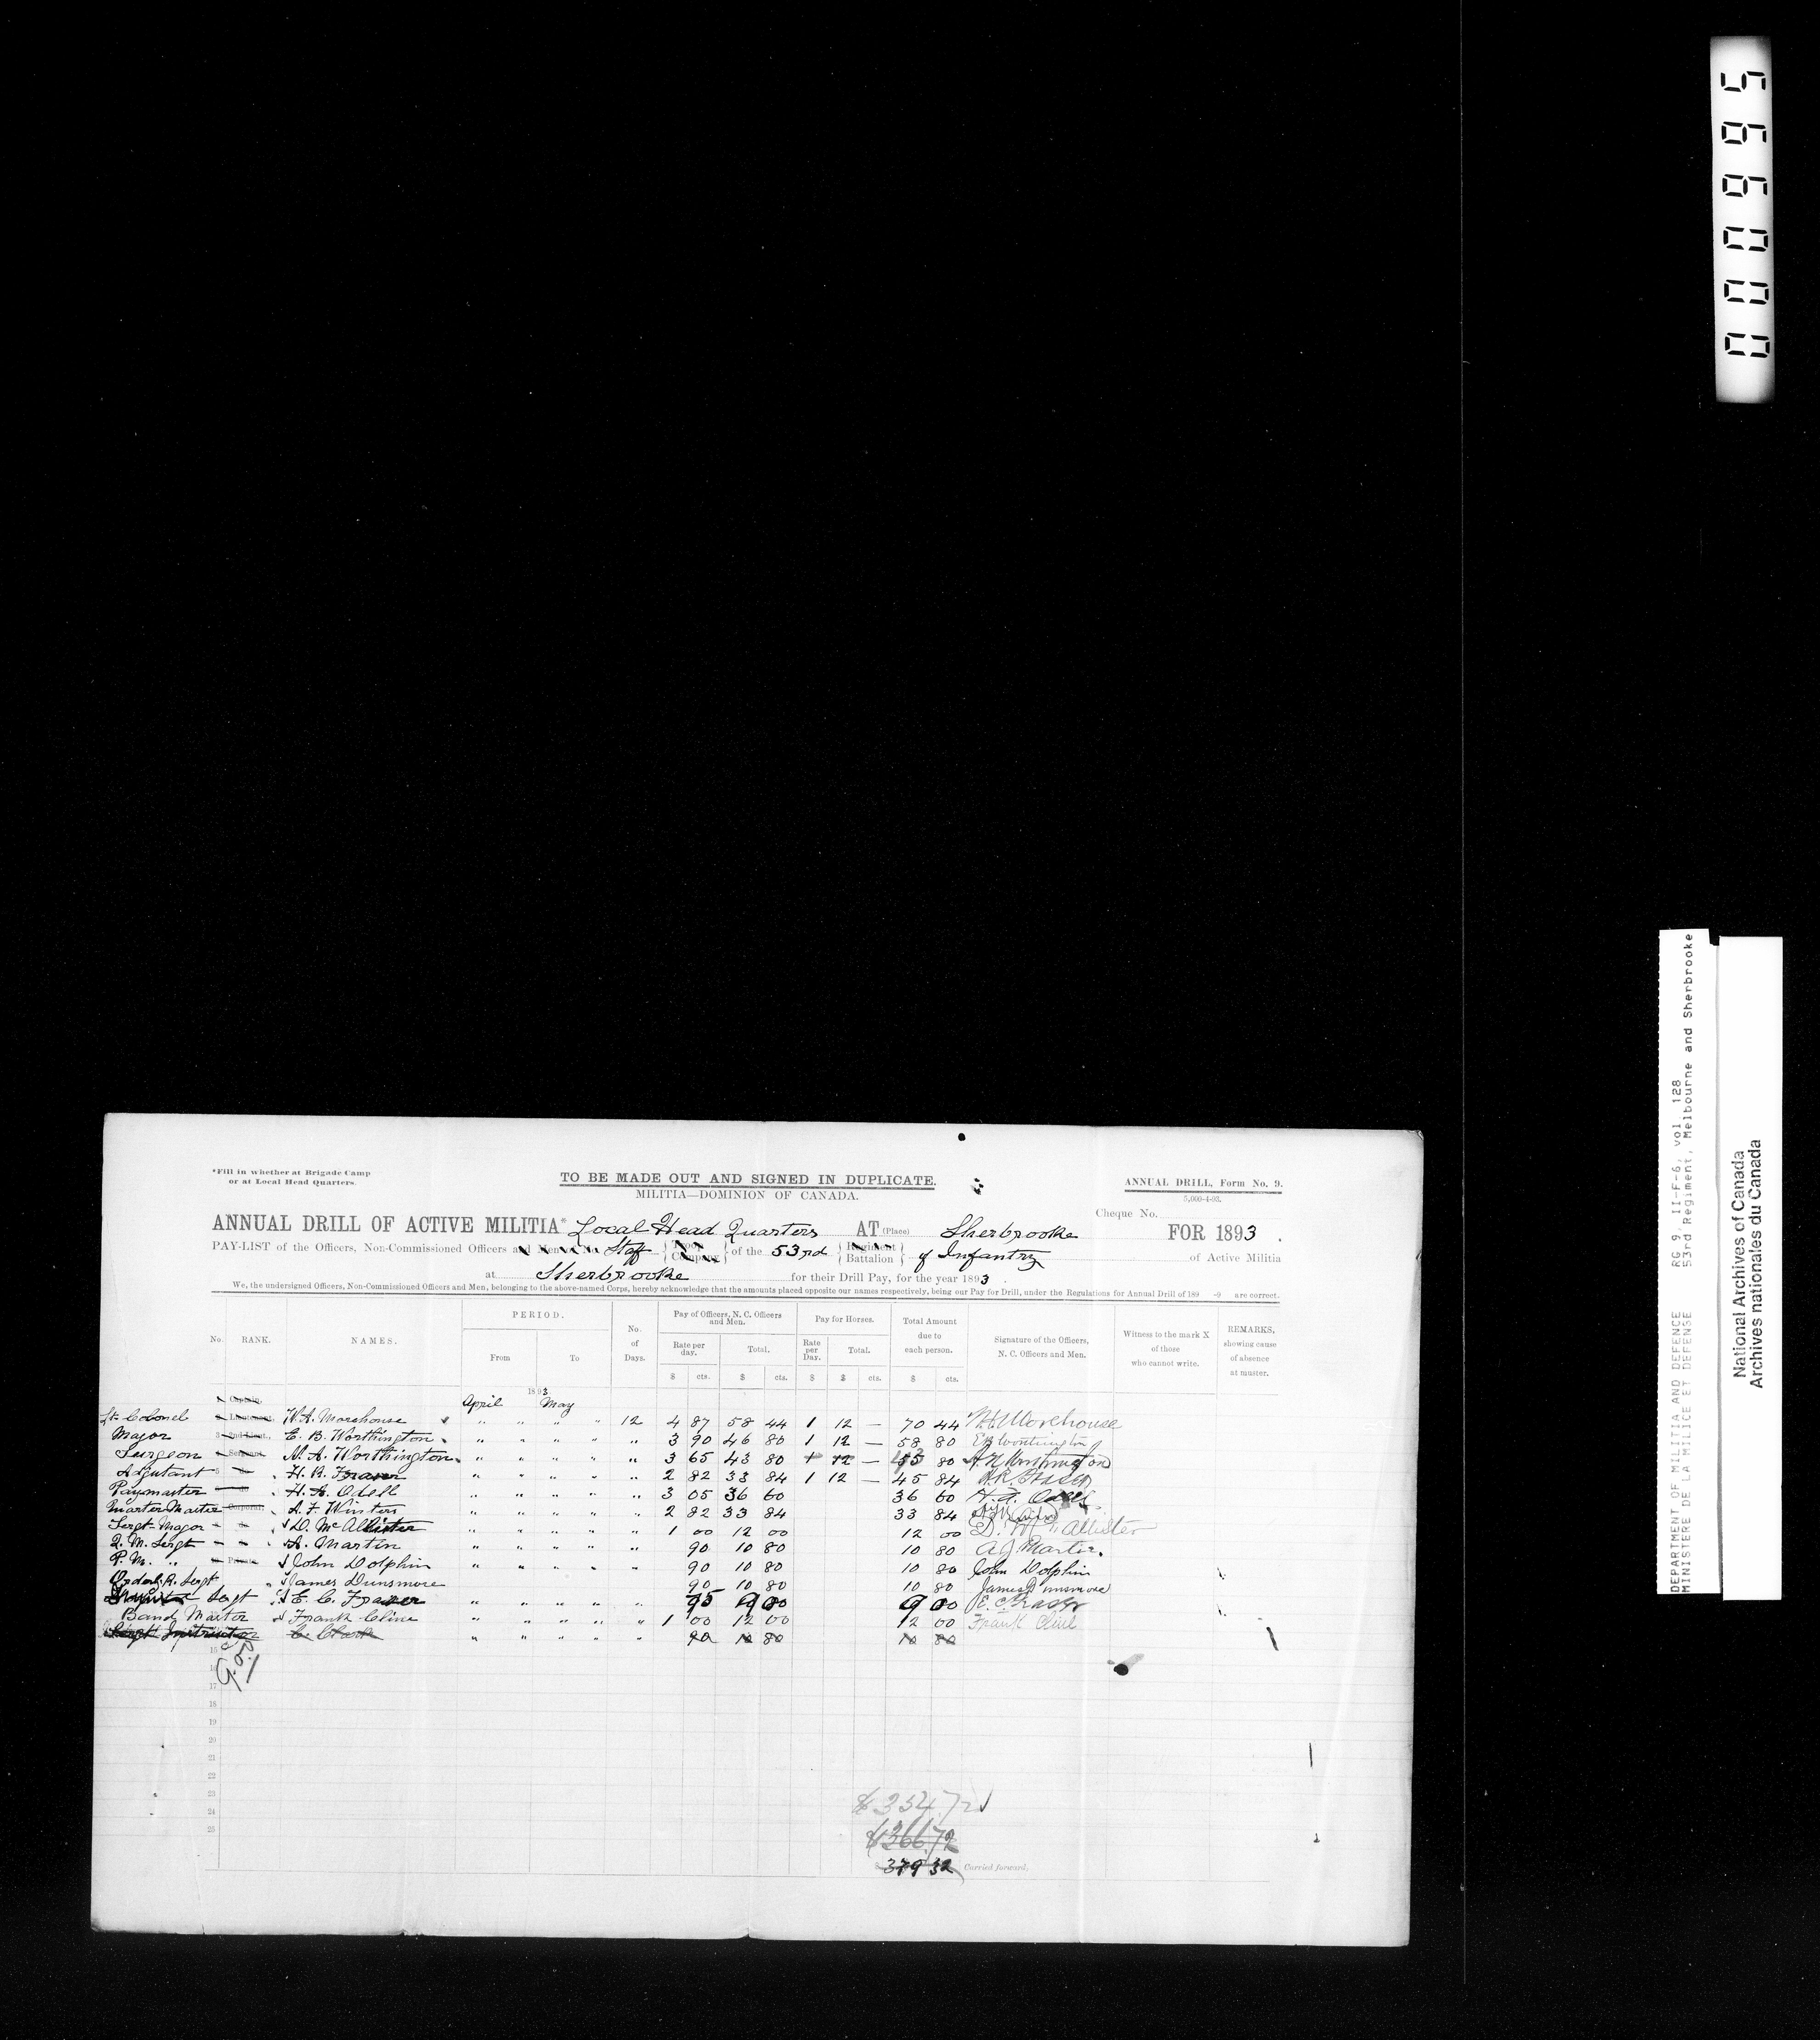 000995
*Fill in whether at Brigade Camp
or at Local Head Quarters.
TO BE MADE OUT AND SIGNED IN DUPLICATE.
MILITIA—DOMINION OF CANADA.
ANNUAL DRILL, Form No. 9.
5,000-4-93.
Cheque No.
ANNUAL DRILL OF ACTIVE MILITIA* Local Head Quarters AT (Place) Sherbrooke FOR 1893.
PAY-LIST of the Officers, Non-Commissioned Officers and Men of No. Staff { Troop Company } of the 53rd { Regiment Battalion } of Infantry of Active Militia
at Sherbrooke for their Drill Pay, for the year 1893.
We, the undersigned Officers, Non-Commissioned Officers and Men, belonging to the above-named Corps, hereby acknowledge that the amounts placed opposite our names respectively, being our Pay for Drill, under the Regulations for Annual Drill of 189 -9 are correct.
No. RANK. NAMES. PERIOD. From To No. of Days. Pay of Officers, N. C. Officers and Men. Rate per day. $ cts. Total. $ cts. Pay for Horses. Rate per Day. $ Total. $ cts. Total Amount due to each person. $ cts. Signature of the Officers, N. C. Officers and Men. Witness to the mark X of those who cannot write. REMARKS, showing cause of absence at muster.
1893
Captain. April May
Lt Colonel W. A. Morehouse " " " " 12 4 87 58 44 1 12 — 70 44 W. A. Morehouse
Major E. B. Worthington " " " " " 3 90 46 80 1 12 — 58 80 E B Worthington
Surgeon N. A. Worthington " " " " " 3 65 43 80 1 12 — 43 80 A N Worthington
Adjutant H. R. Fraser " " " " " 2 82 33 84 1 12 — 45 84 H. R. Fraser
Paymaster H. A. Odell " " " " " 3 05 36 60 36 60 H. A. Odell
Quarter Master A. F. Winter " " " " " 2 82 33 84 33 84
Sergt-Major D. McAllister " " " " " 1 00 12 00 12 00 D. McAllister
Q. M. Sergt A. Martin " " " " " 90 10 80 10 80 A J Martin
P. M. " John Dolphin " " " " " 90 10 80 10 80 John Dolphin
Orderly R. Sergt James Dunsmore 90 10 80 10 80 James Dunsmore
Sergt E. C. Fraser " " " " " 75 9 00 9 00 E. C. Fraser
Band Master Frank Cline " " " " " 1 00 12 00 12 00 Frank Cline
Sergt Instructor C. Clark " " " " " 90 10 80 10 80
15
16
17
18
19
20
21
22
23
24
25
$354.72
$366.72
379 32 Carried forward.
DEPARTMENT OF MILITIA AND DEFENCE RG 9, II-F-6, vol 128
MINISTERE DE LA MILICE ET DEFENSE 53rd Regiment, Melbourne and Sherbrooke
National Archives of Canada
Archives nationales du Canada